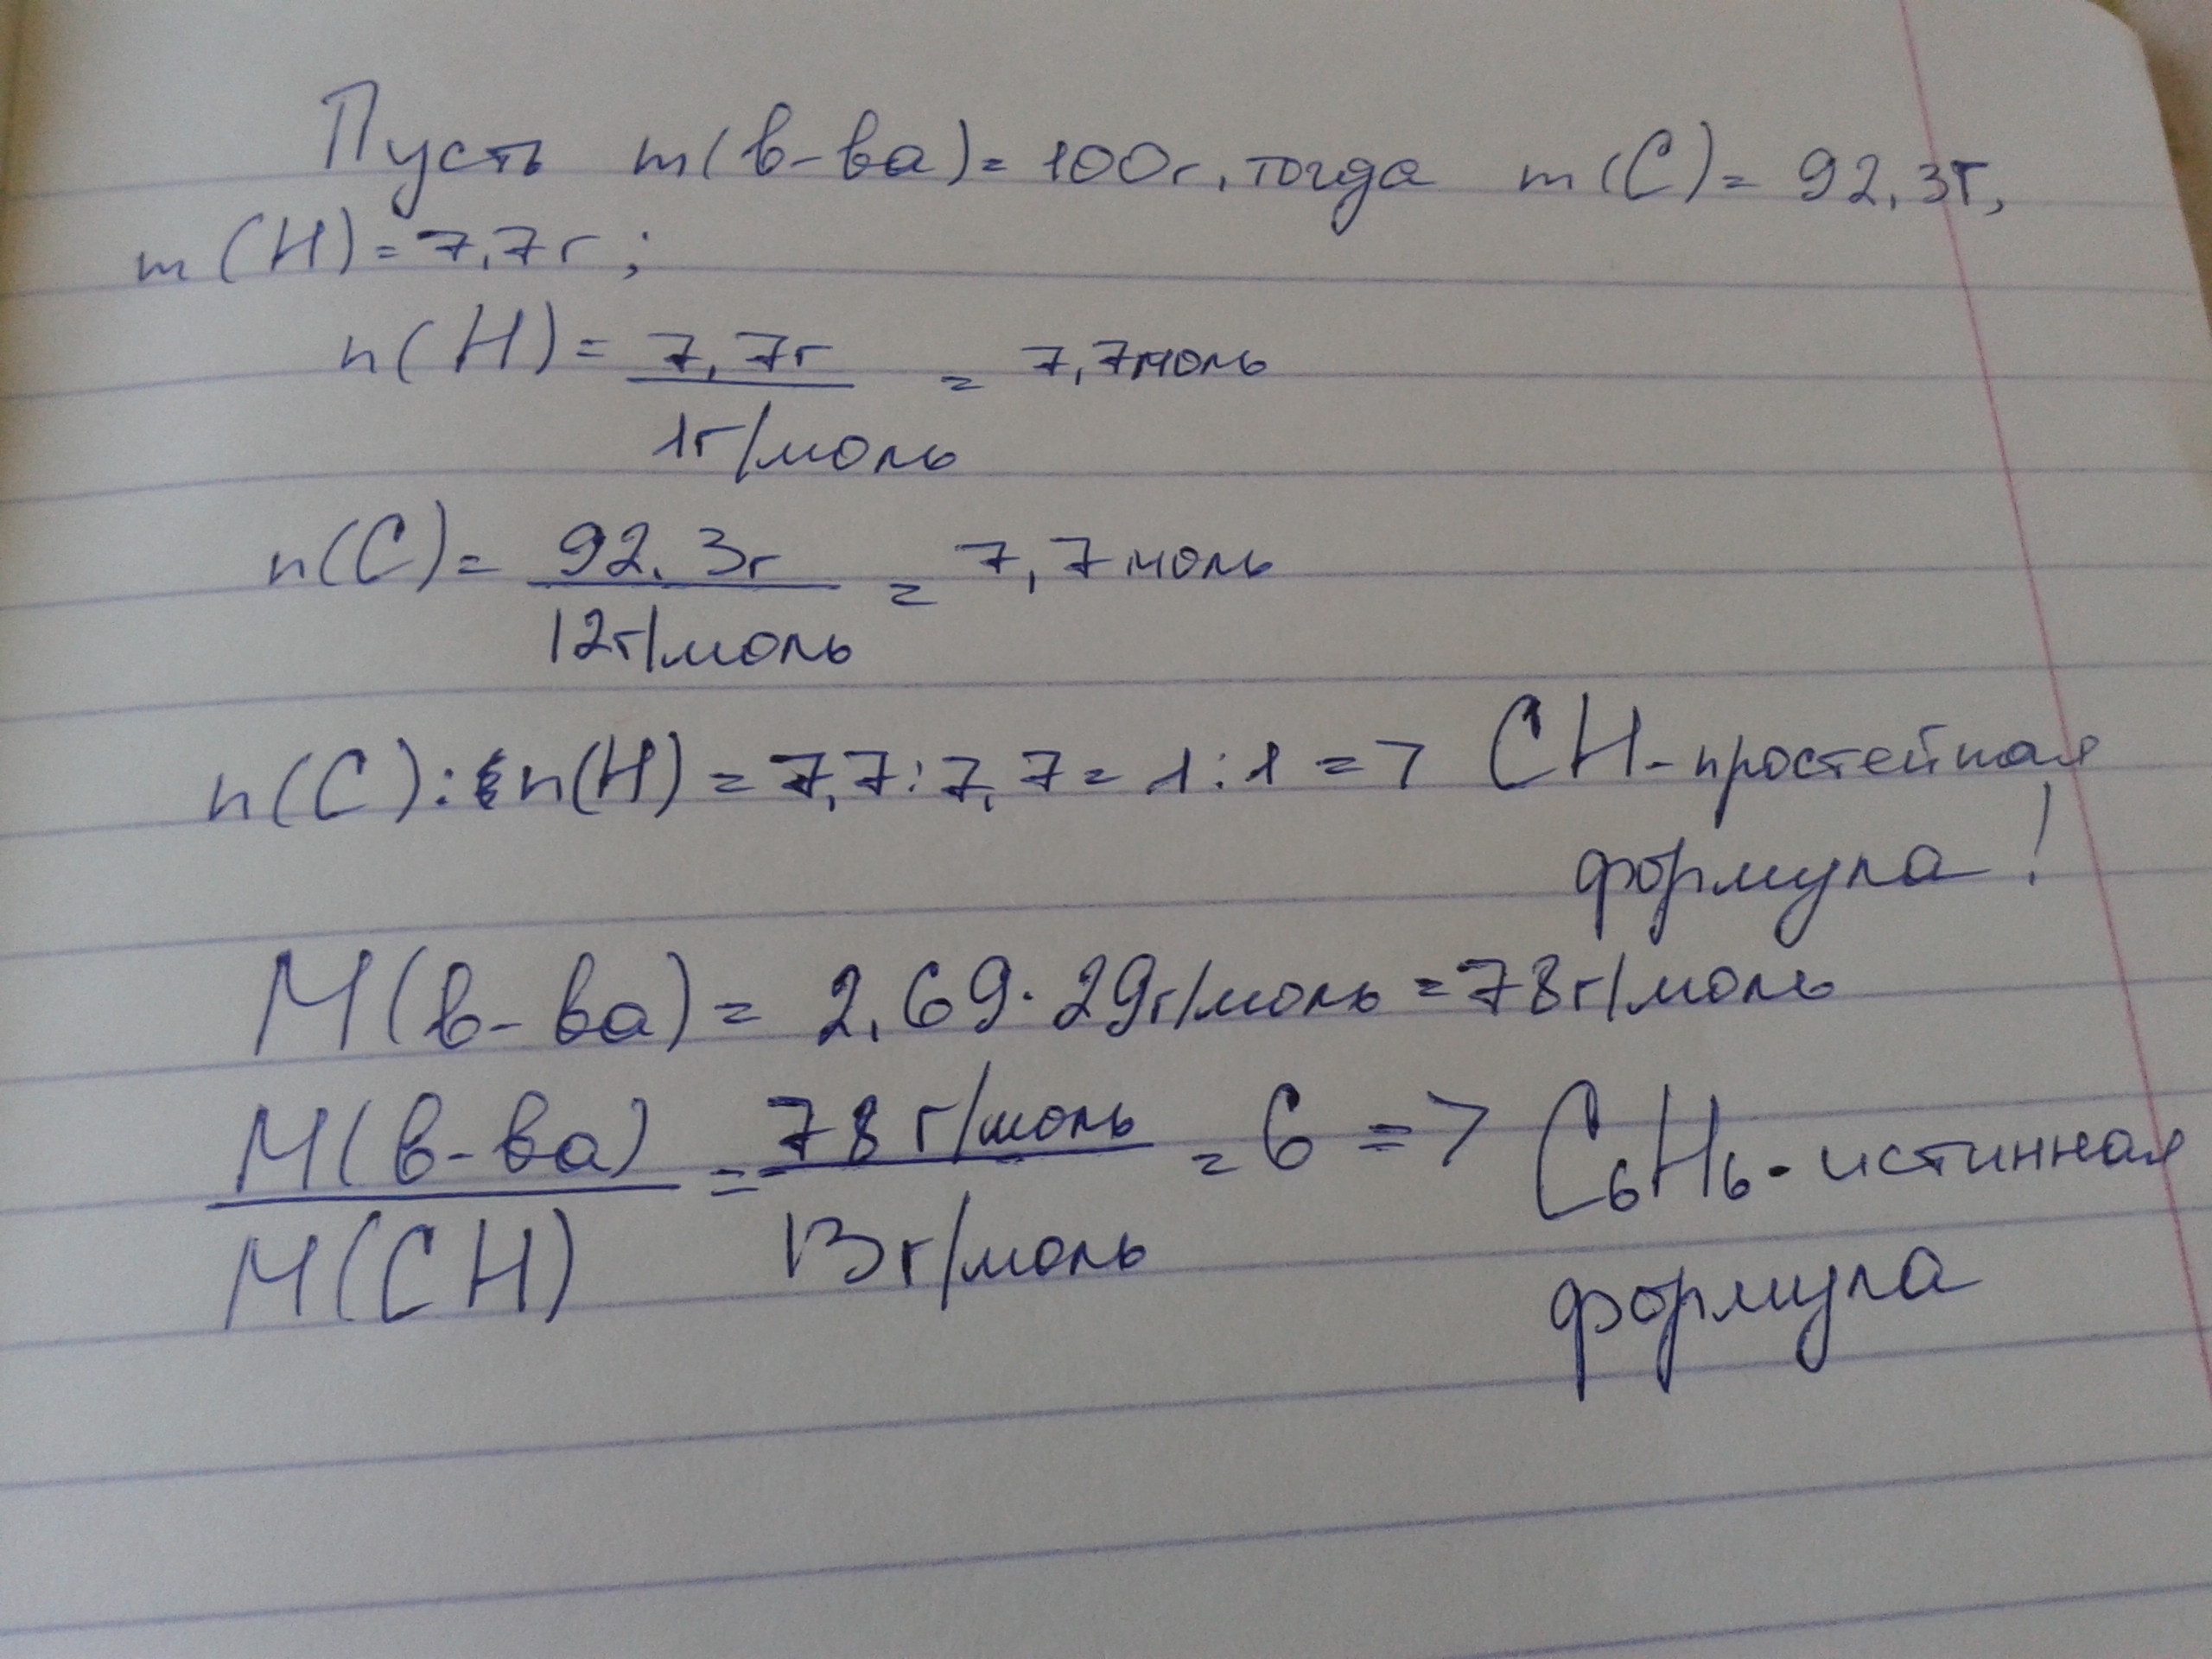 Пусть m(в-ва) = 100г, тогда m(C) = 92,3г,
m(H) = 7,7г;
n(H) = 7,7г / 1г/моль = 7,7моль
n(C) = 92,3г / 12г/моль = 7,7моль
n(C) : n(H) = 7,7 : 7,7 = 1 : 1 => CH - простейшая
формула!
M(в-ва) = 2,69 · 29г/моль = 78г/моль
M(в-ва) / M(CH) = 78 г/моль / 13г/моль = 6 => C₆H₆ - истинная
формула